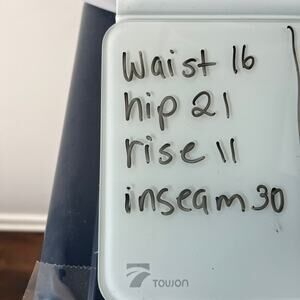 Waist 16
hip 21
rise 11
inseam 30
TOUJON